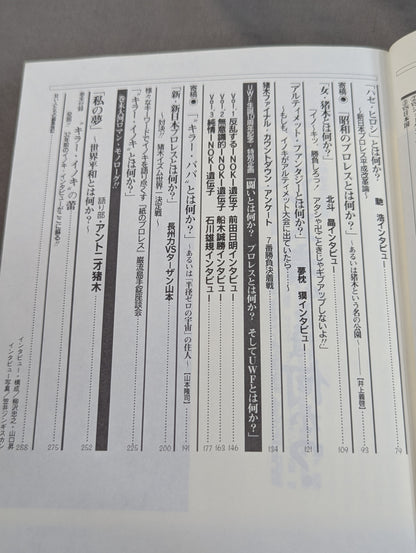 「ハセ・ヒロシ」とは何か？ 馳 浩インタビュー
〜新日本プロレス平成改革論〜 79
寄稿● 「昭和のプロレスとは何か？」〜あるいは猪木という名の公園〜 [井上義啓] 93
「女・猪木とは何か？」 北斗 晶インタビュー
「イノーキッ、勝負しろっ！ アタシャ卍ごときじゃギブアップしないよ!!」 109
「アルティメット・ファンタジーとは何か？」 夢枕 獏インタビュー
〜もしも、イノキがアルティメット大会に出ていたら…〜 121
猪木ファイナル・カウントダウン・アンケート 7番勝負決着戦 134
「闘いとは何か？ プロレスとは何か？ そしてUWFとは何か？」
vol.1 反乱するI-NOKI遺伝子 前田日明インタビュー 146
vol.2 無意識的I-NOKI遺伝子 船木誠勝インタビュー 163
vol.3 純情I-NOKI遺伝子 石川雄規インタビュー 177
寄稿● 「“キラー・ババ”とは何か？」〜あるいは「半径ゼロの宇宙」の住人〜 [山本隆司] 191
「新・新日本プロレスとは何か？」
対決!! 猪木イズム世界一決定戦 長州力VSターザン山本 200
「“キラー・イノキ”とは何か？」
様々なキーワードでイノキを語り尽くす 「紙のプロレス」巌流島手錠座談会 225
巻末大河ロマン・モノローグ!!
「私の夢」〜世界平和とは何か？〜 語り部・アントニオ猪木 252
“キラー・イノキ”の蕾 275
255
インタビュー・構成／柳沢忠之・山口昇
インタビュー写真／笠井ジンギスカン